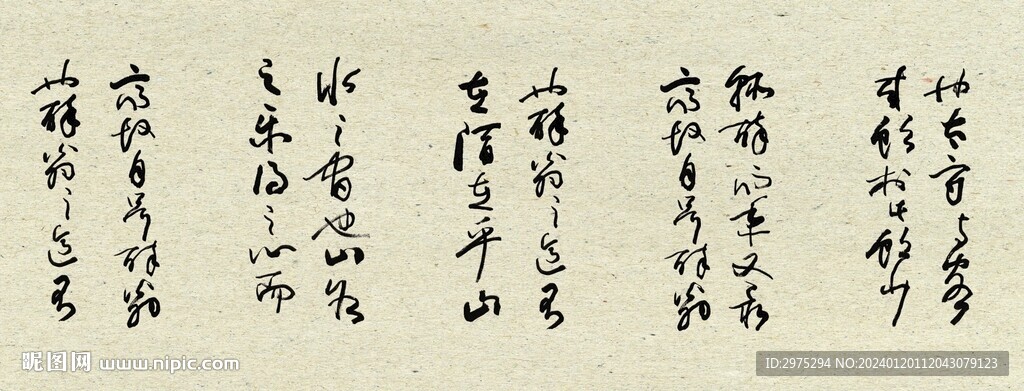 也太守与客
来飲於此飲少
輒醉而年又最
高故自号醉翁
也醉翁之意不
在酒在乎山
水之間也山水
之乐得之心而
高故自号醉翁
也醉翁之意不
昵图网 www.nipic.com
ID:2975294 NO:20240120112043079123